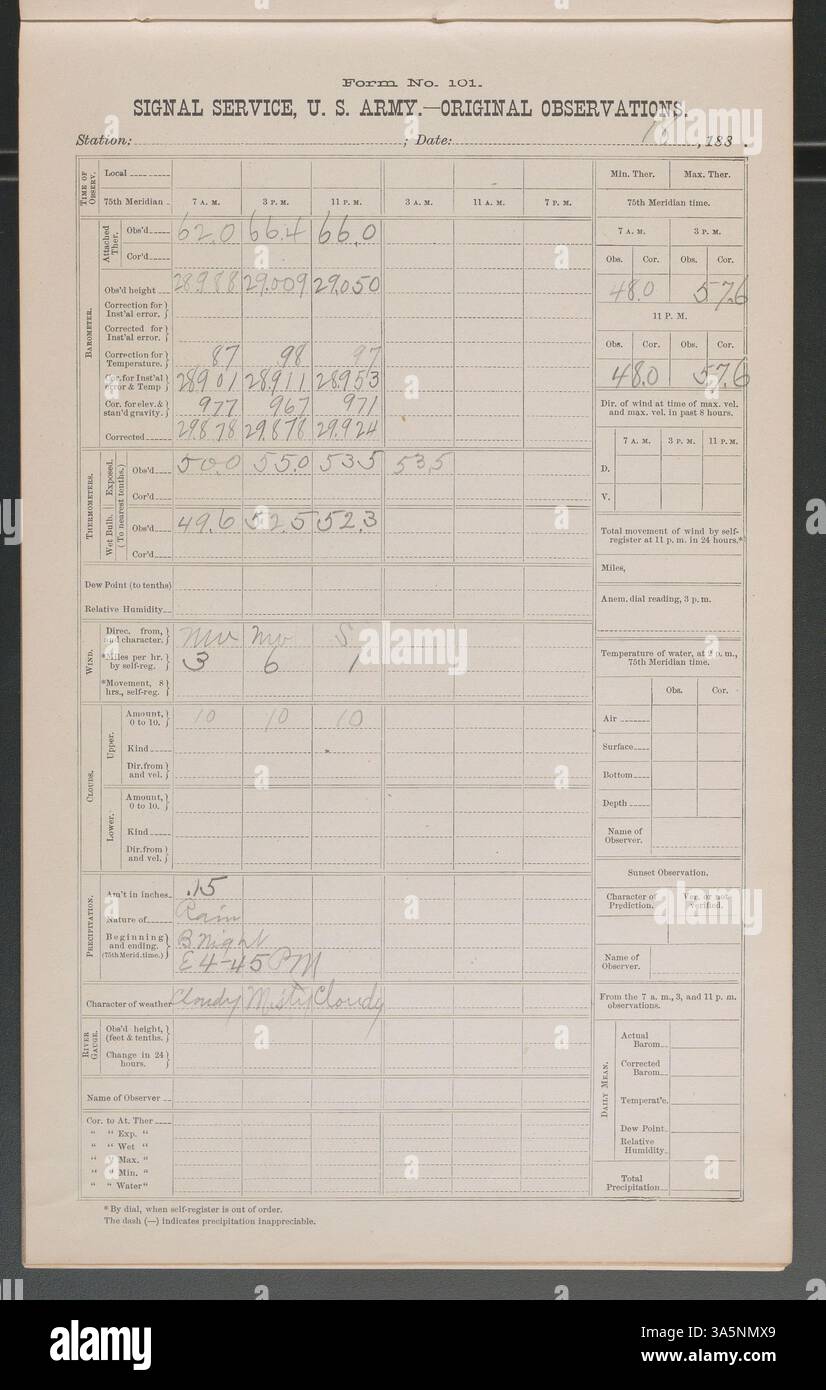 Form No. 101.
SIGNAL SERVICE, U. S. ARMY.—ORIGINAL OBSERVATIONS.
Station: ; Date: , 188 .
TIME OF OBSERV.
Local
75th Meridian 7 A. M. 3 P. M. 11 P. M. 3 A. M. 11 A. M. 7 P. M.
BAROMETER.
Attached Ther.
Obs'd 62.0 66.4 66.0
Cor'd
Obs'd height 28988 29.009 29.050
Correction for Inst'al error.
Corrected for Inst'al error.
Correction for Temperature. 87 98 97
Cor. for Inst'al error & Temp 28901 28911 28953
Cor. for elev. & stan'd gravity. 977 967 971
Corrected 29.878 29.878 29.924
THERMOMETERS.
Exposed. (To nearest tenths.)
Obs'd 50.0 55.0 53.5 53.5
Cor'd
Wet Bulb.
Obs'd 49.6 52.5 52.3
Cor'd
Dew Point (to tenths)
Relative Humidity
WIND.
Direc. from, and character. S
*Miles per hr. by self-reg. 3 6 1
*Movement, 8 hrs., self-reg.
CLOUDS.
Upper.
Amount, 0 to 10. 10 10 10
Kind
Dir. from and vel.
Lower.
Amount, 0 to 10.
Kind
Dir. from and vel.
PRECIPITATION.
Am't in inches .15
Nature of Rain
Beginning and ending. (75th Merid. time.) B Night
E 4-45 PM
Character of weather Cloudy Misty Cloudy
RIVER GAUGE.
Obs'd height, (feet & tenths.)
Change in 24 hours.
Name of Observer
Cor. to At. Ther
" " Exp. "
" " Wet "
" " Max. "
" " Min. "
" " Water"
Min. Ther. Max. Ther.
75th Meridian time.
7 A. M. 3 P. M.
Obs. Cor. Obs. Cor.
48.0 57.6
11 P. M.
Obs. Cor. Obs. Cor.
48.0 57.6
Dir. of wind at time of max. vel. and max. vel. in past 8 hours.
7 A. M. 3 P. M. 11 P. M.
D.
V.
Total movement of wind by self-register at 11 p. m. in 24 hours.*
Miles,
Anem. dial reading, 3 p. m.
Temperature of water, at 2 p. m., 75th Meridian time.
Obs. Cor.
Air
Surface
Bottom
Depth
Name of Observer.
Sunset Observation.
Character of Prediction. Ver. or not verified.
Name of Observer.
From the 7 a. m., 3, and 11 p. m. observations.
DAILY MEAN.
Actual Barom.
Corrected Barom.
Temperat'e.
Dew Point
Relative Humidity
Total Precipitation
* By dial, when self-register is out of order.
The dash (—) indicates precipitation inappreciable.
alamy
Image ID: 3A5NMX9
www.alamy.com